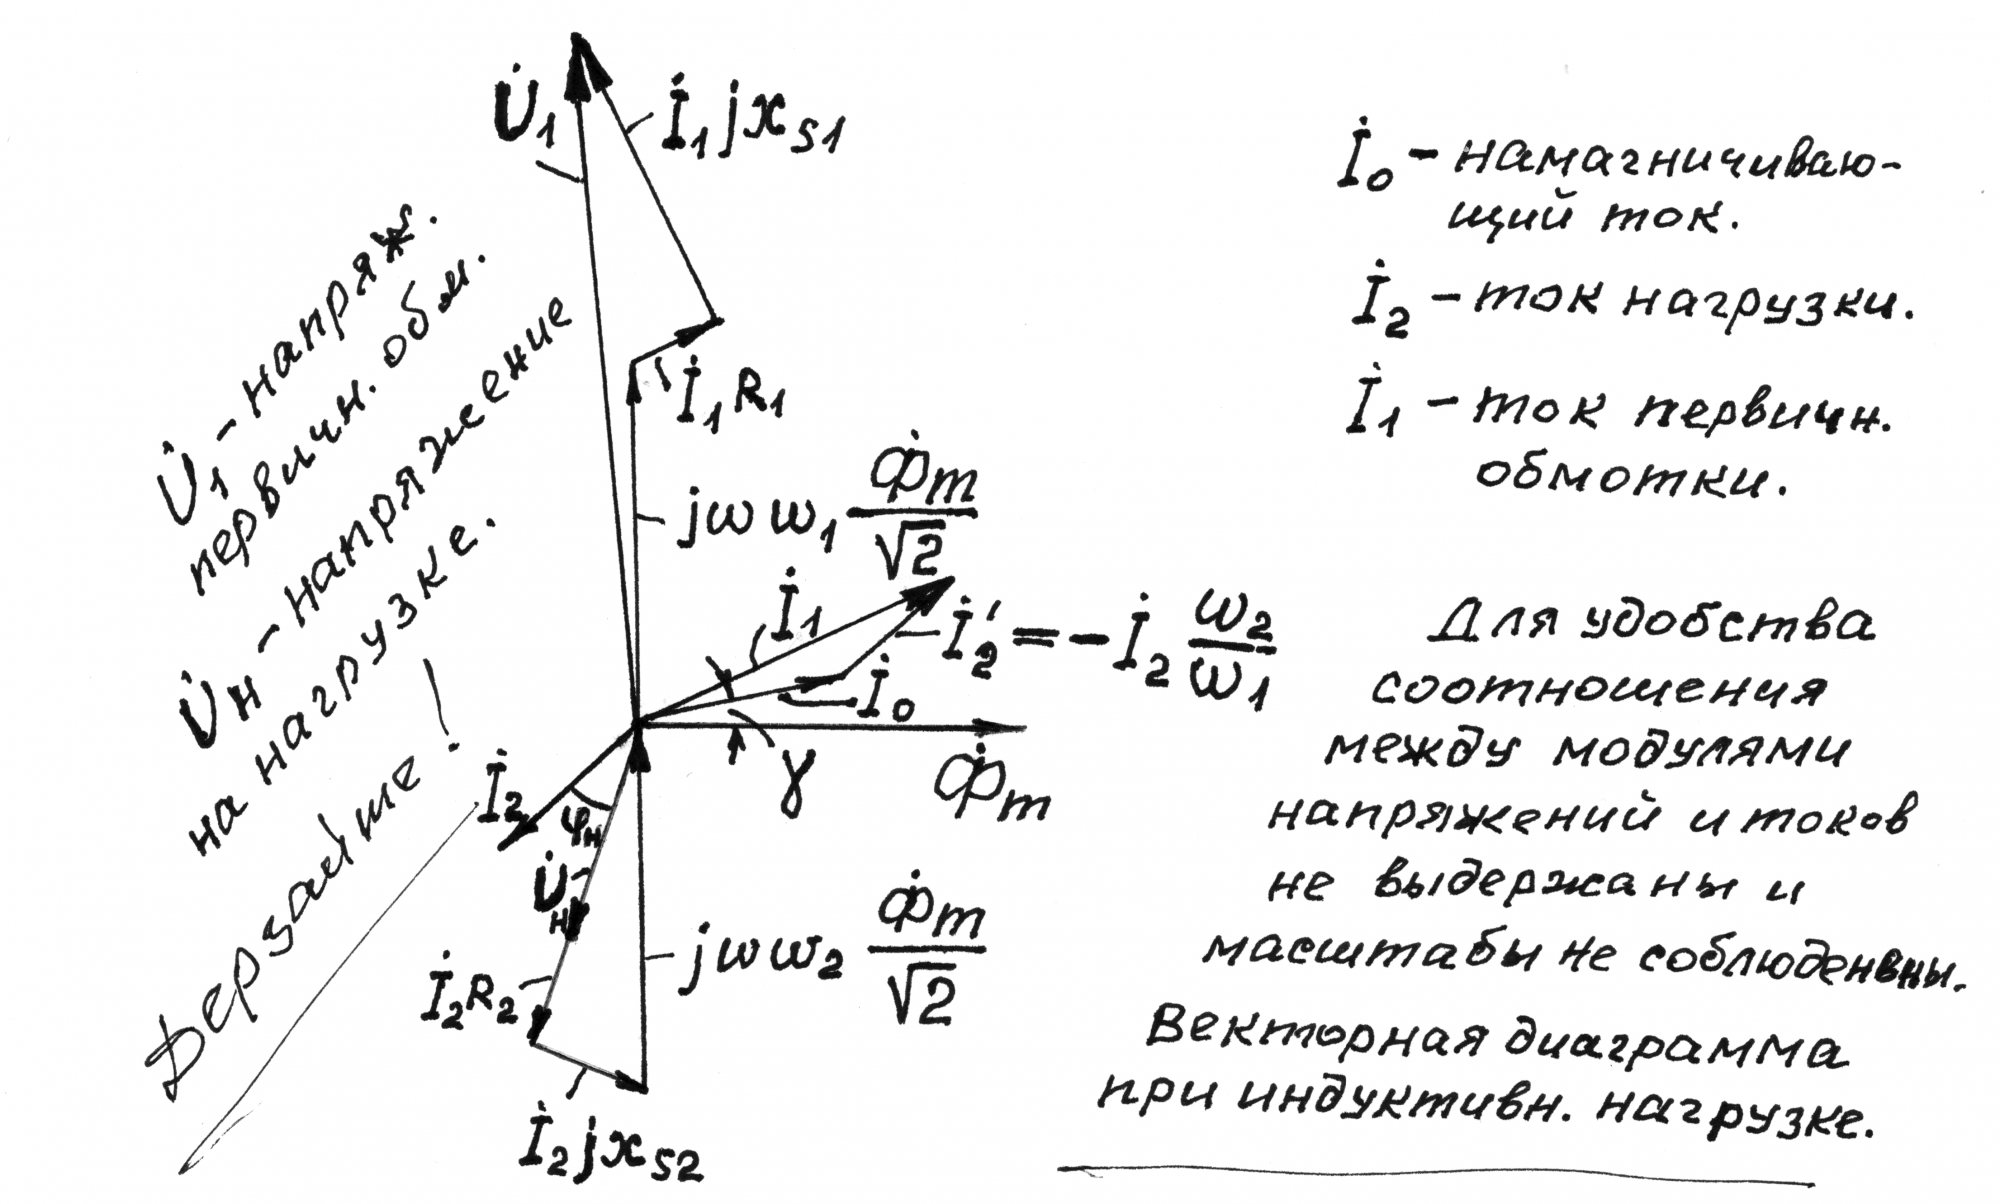 U̇1
İ1jxs1
İ1R1
jωw1 Φ̇m/√2
İ1
İ2' = -İ2 w2/w1
İ0
γ
Φ̇m
İ2
φн
U̇н
İ2R2
jωw2 Φ̇m/√2
İ2jxs2
U̇1 - напряж.
первичн. обм.
U̇н - напряжение
на нагрузке.
Дерзайте!
İ0 - намагничиваю-
щий ток.
İ2 - ток нагрузки.
İ1 - ток первичн.
обмотки.
Для удобства
соотношения
между модулями
напряжений и токов
не выдержаны и
масштабы не соблюденвны.
Векторная диаграмма
при индуктивн. нагрузке.